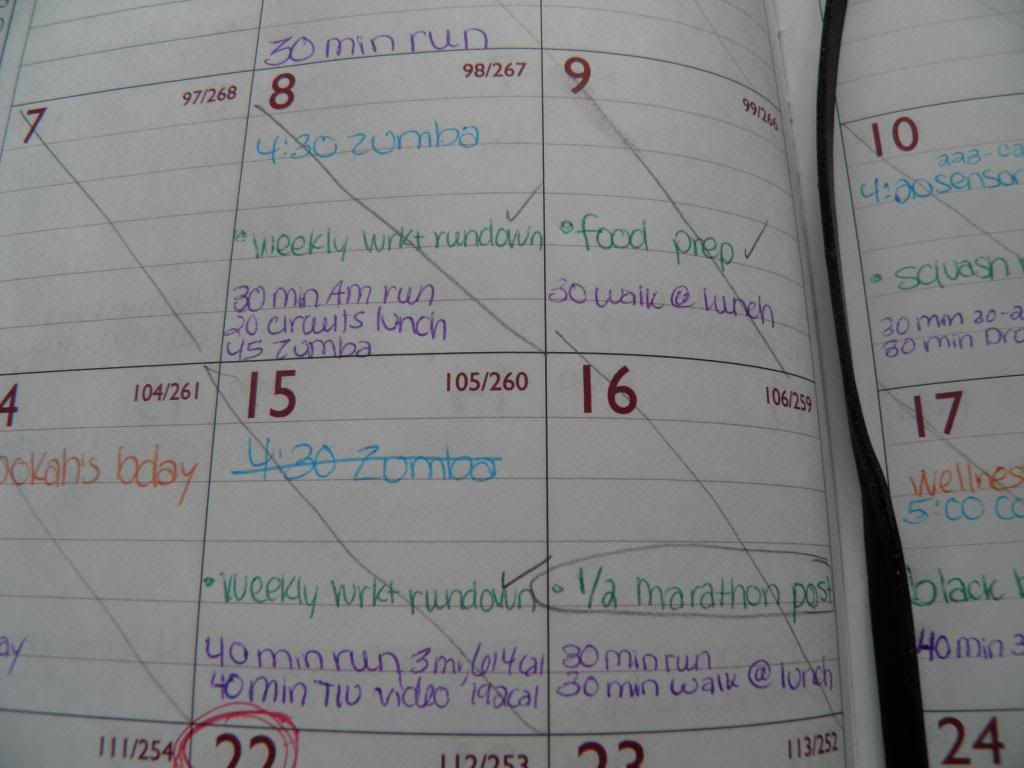 30 min run
7 97/268
8 98/267
4:30 Zumba
• weekly wrkt rundown
30 min Am run
20 circuits lunch
45 Zumba
9 99/266
• food prep
30 walk @ lunch
10
4:20
• squash
30 min 20-2
30 min
4 104/261
ookah's bday
ay
15 105/260
4:30 Zumba
• weekly wrkt rundown
40 min run 3mi, 614cal
40 min TIU video 198cal
16 106/259
• 1/2 marathon post
30 min run
30 min walk @ lunch
17
wellnes
5:00
black b
40 min 3
111/254
22 112/253
23 113/252
24